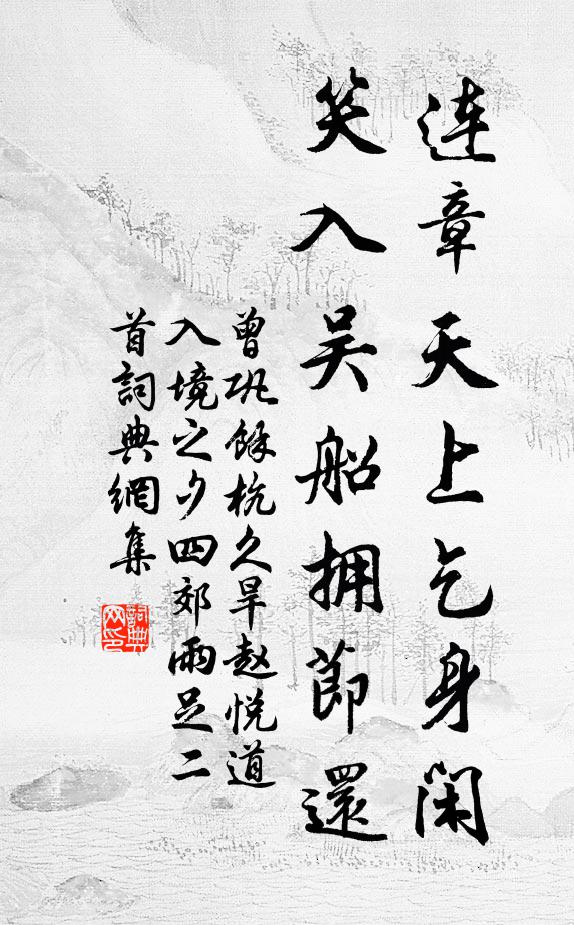 连章天上乞身闲
笑入吴船拥节還
曾巩餘杭久旱赵悦道
入境之夕四郊雨足二
首詞典網集
詞典
网印